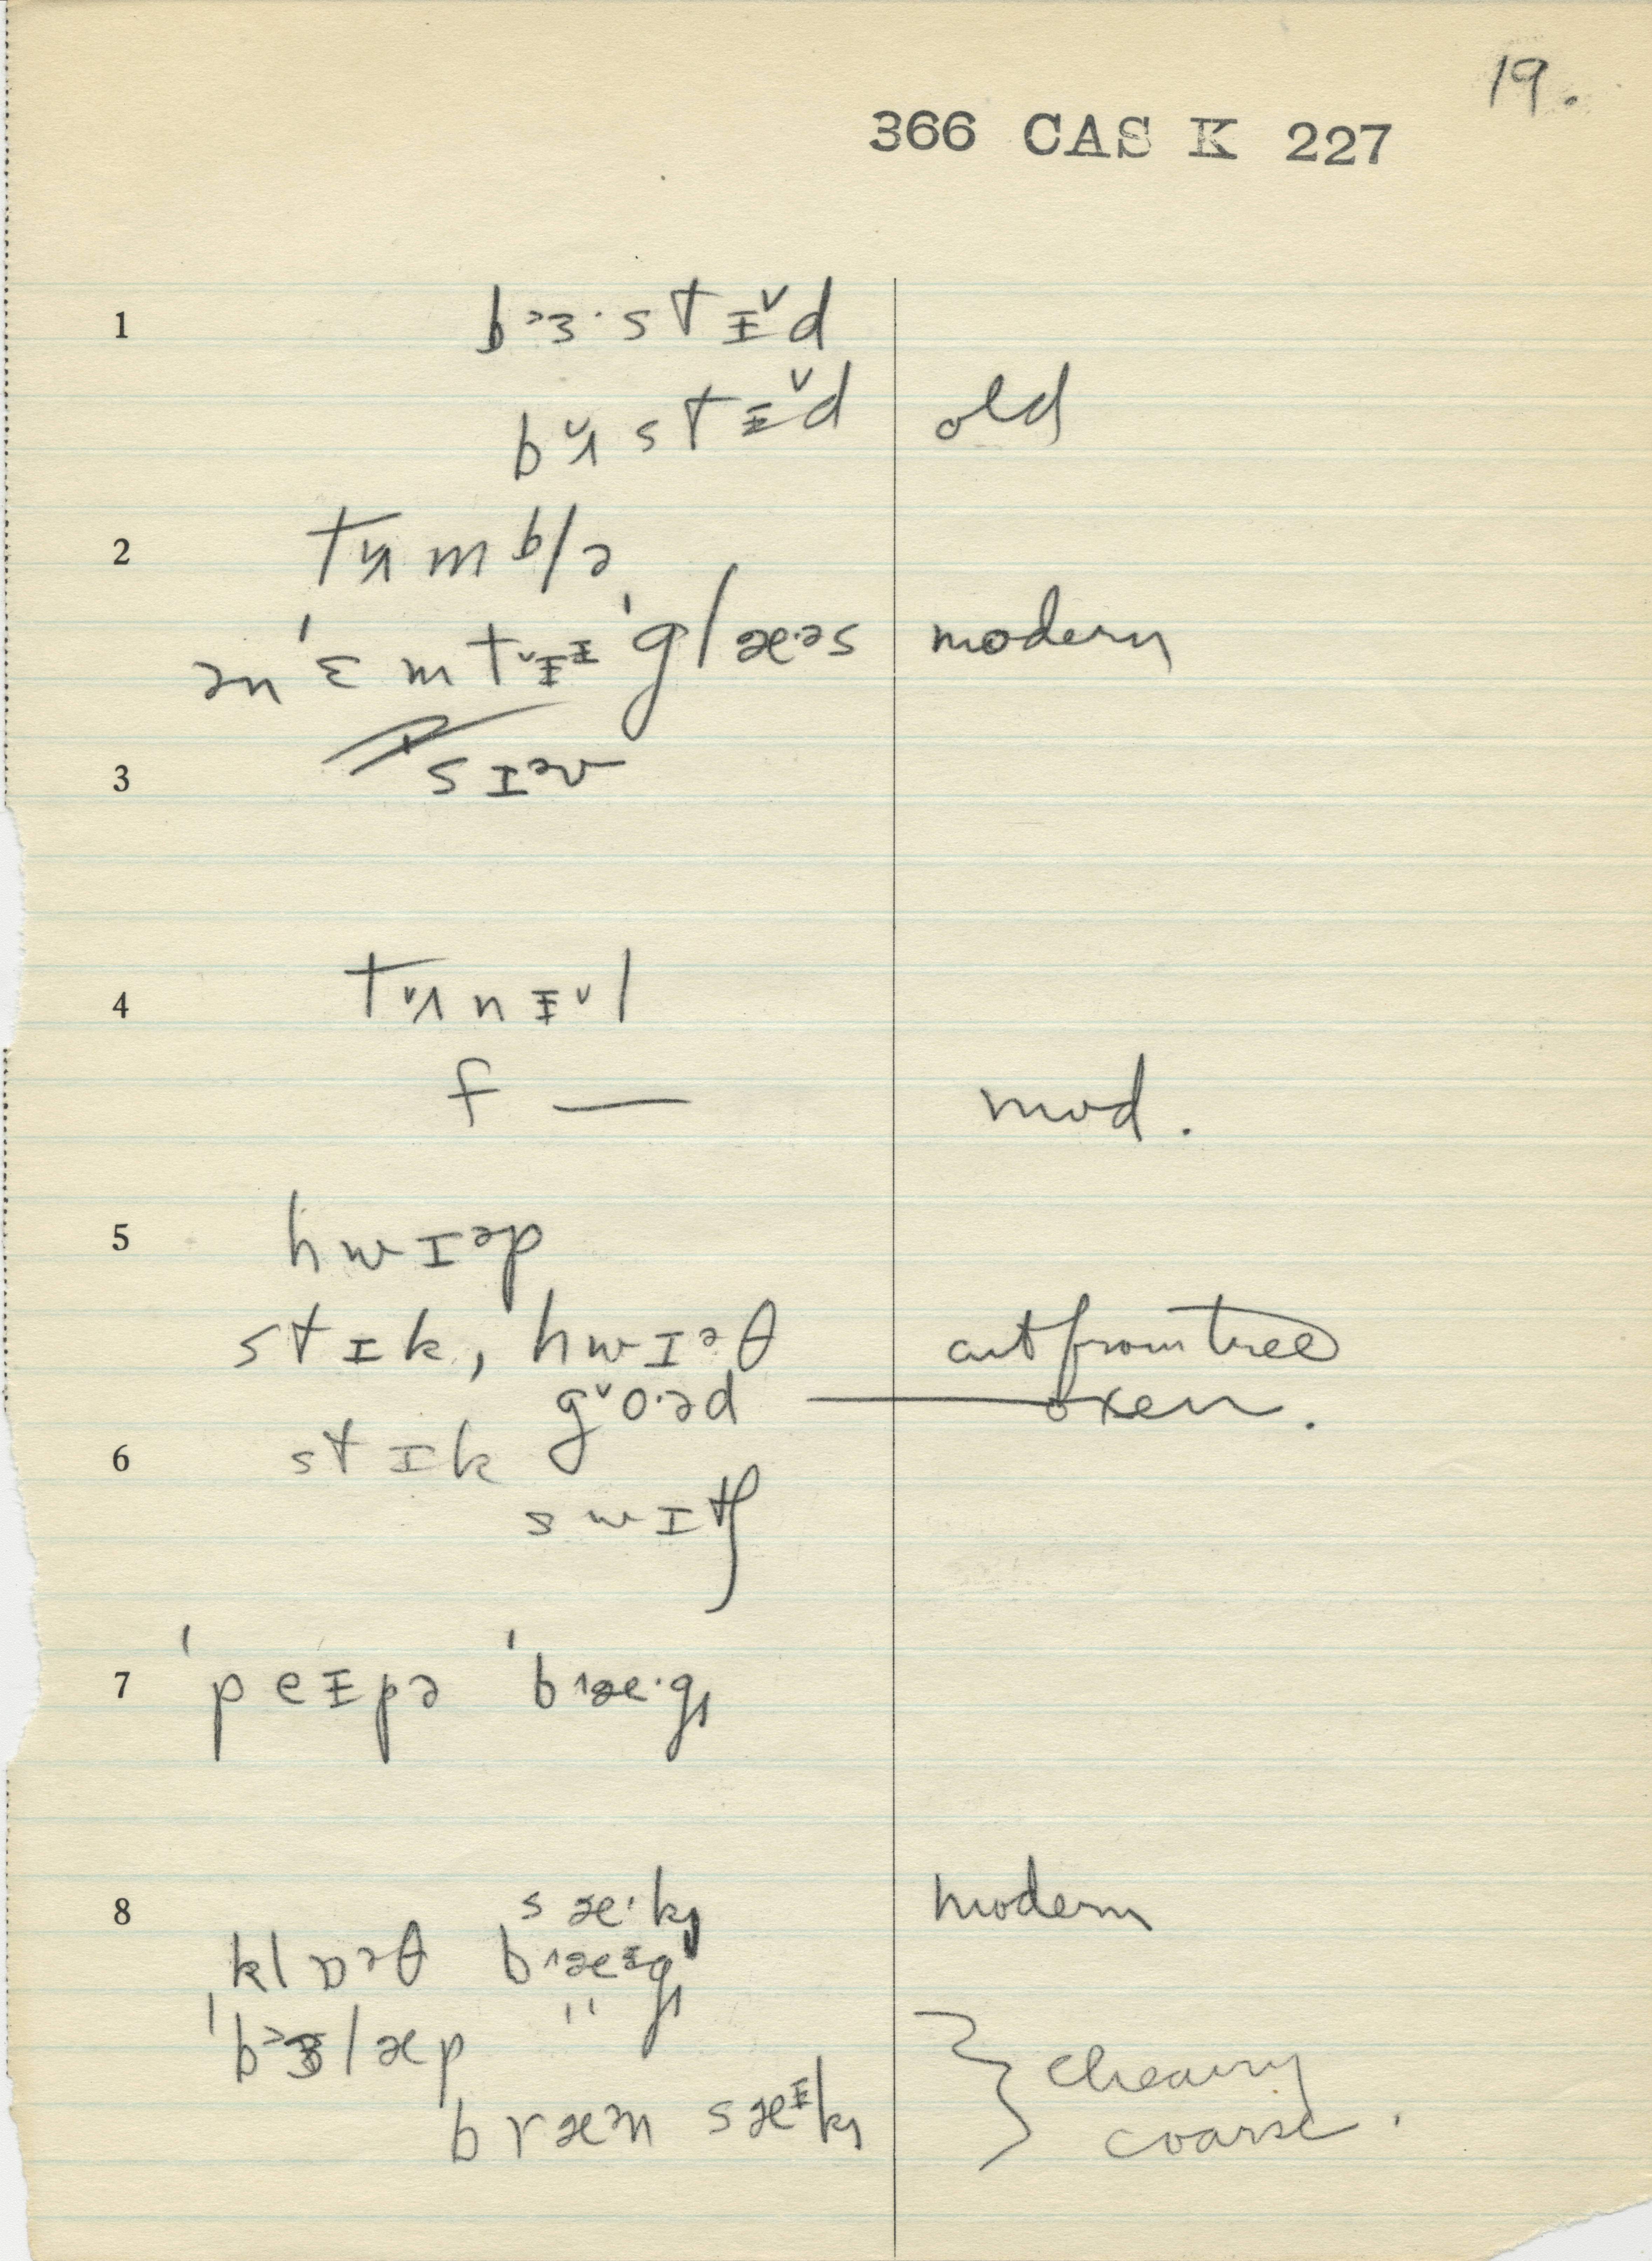 19.
366 CAS K 227
1 b˃ɜ·stɪ̵ˇd
bˇʌstɪ̵ˇd old
2 tʌmblə
ən ˈɛmtˇɪ̵ɪ̵ ˈglæ·əs modern
3 sɪəv
4 tˇʌnɪ̵ˇl
f — mod.
5 hwɪəp
stɪk, hwɪəθ cut from tree
gˇo·əd — oxen.
6 stɪk
swɪtʃ
7 ˈpeɪ̵pə ˈbɹæ·g
8 sæ·k modern
klɒəθ bɹæɪ̵g
ˈb˃ɜlæp "
bræən sæɪ̵k
coarse.